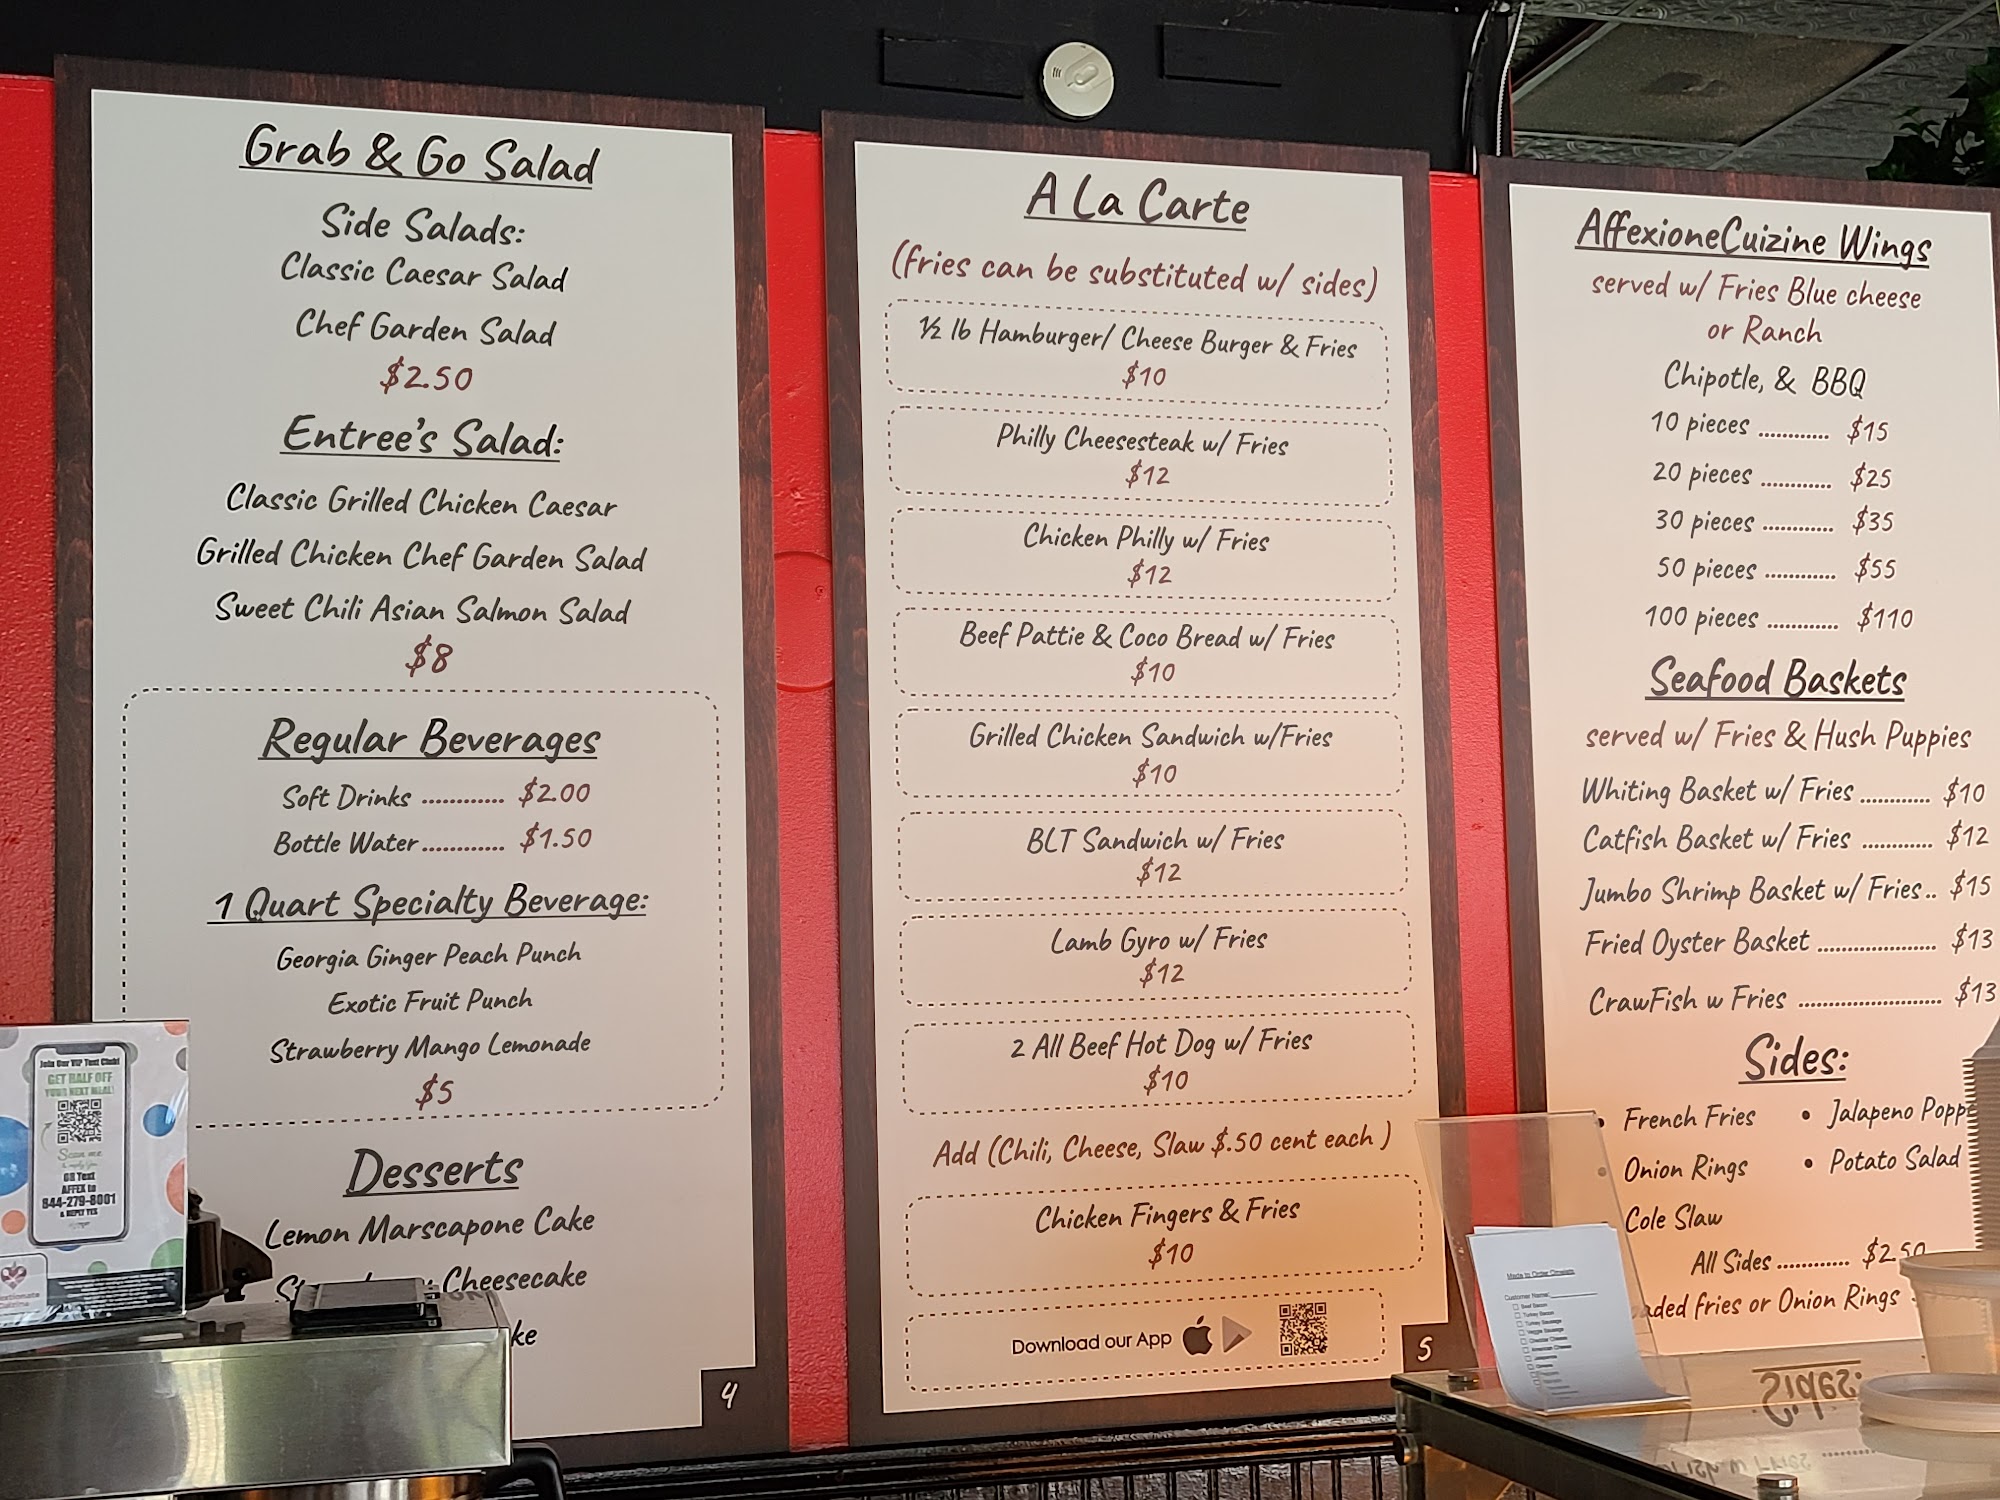 Grab & Go Salad
Side Salads:
Classic Caesar Salad
Chef Garden Salad
$2.50
Entree's Salad:
Classic Grilled Chicken Caesar
Grilled Chicken Chef Garden Salad
Sweet Chili Asian Salmon Salad
$8
Regular Beverages
Soft Drinks ............ $2.00
Bottle Water ............ $1.50
1 Quart Specialty Beverage:
Georgia Ginger Peach Punch
Exotic Fruit Punch
Strawberry Mango Lemonade
$5
Desserts
Lemon Marscapone Cake
Cheesecake
4
Join Our VIP Text Club!
GET HALF OFF
YOUR NEXT MEAL!
Scan me
OR Text
AFFEX to
844-279-8001
& REPLY YES
A La Carte
(fries can be substituted w/ sides)
½ lb Hamburger/ Cheese Burger & Fries
$10
Philly Cheesesteak w/ Fries
$12
Chicken Philly w/ Fries
$12
Beef Pattie & Coco Bread w/ Fries
$10
Grilled Chicken Sandwich w/Fries
$10
BLT Sandwich w/ Fries
$12
Lamb Gyro w/ Fries
$12
2 All Beef Hot Dog w/ Fries
$10
Add (Chili, Cheese, Slaw $.50 cent each )
Chicken Fingers & Fries
$10
Download our App
5
AffexioneCuizine Wings
served w/ Fries Blue cheese
or Ranch
Chipotle, & BBQ
10 pieces ............ $15
20 pieces ............ $25
30 pieces ............ $35
50 pieces ............ $55
100 pieces ............ $110
Seafood Baskets
served w/ Fries & Hush Puppies
Whiting Basket w/ Fries ............ $10
Catfish Basket w/ Fries ............ $12
Jumbo Shrimp Basket w/ Fries.. $15
Fried Oyster Basket .................... $13
CrawFish w Fries ........................ $13
Sides:
• French Fries • Jalapeno Popp
• Onion Rings • Potato Salad
Cole Slaw
All Sides ............ $2.50
aded fries or Onion Rings
Made to Order Omelets
Customer Name:
Beef Bacon
Turkey Bacon
Turkey Sausage
Veggie Sausage
Cheddar Cheese
American Cheese